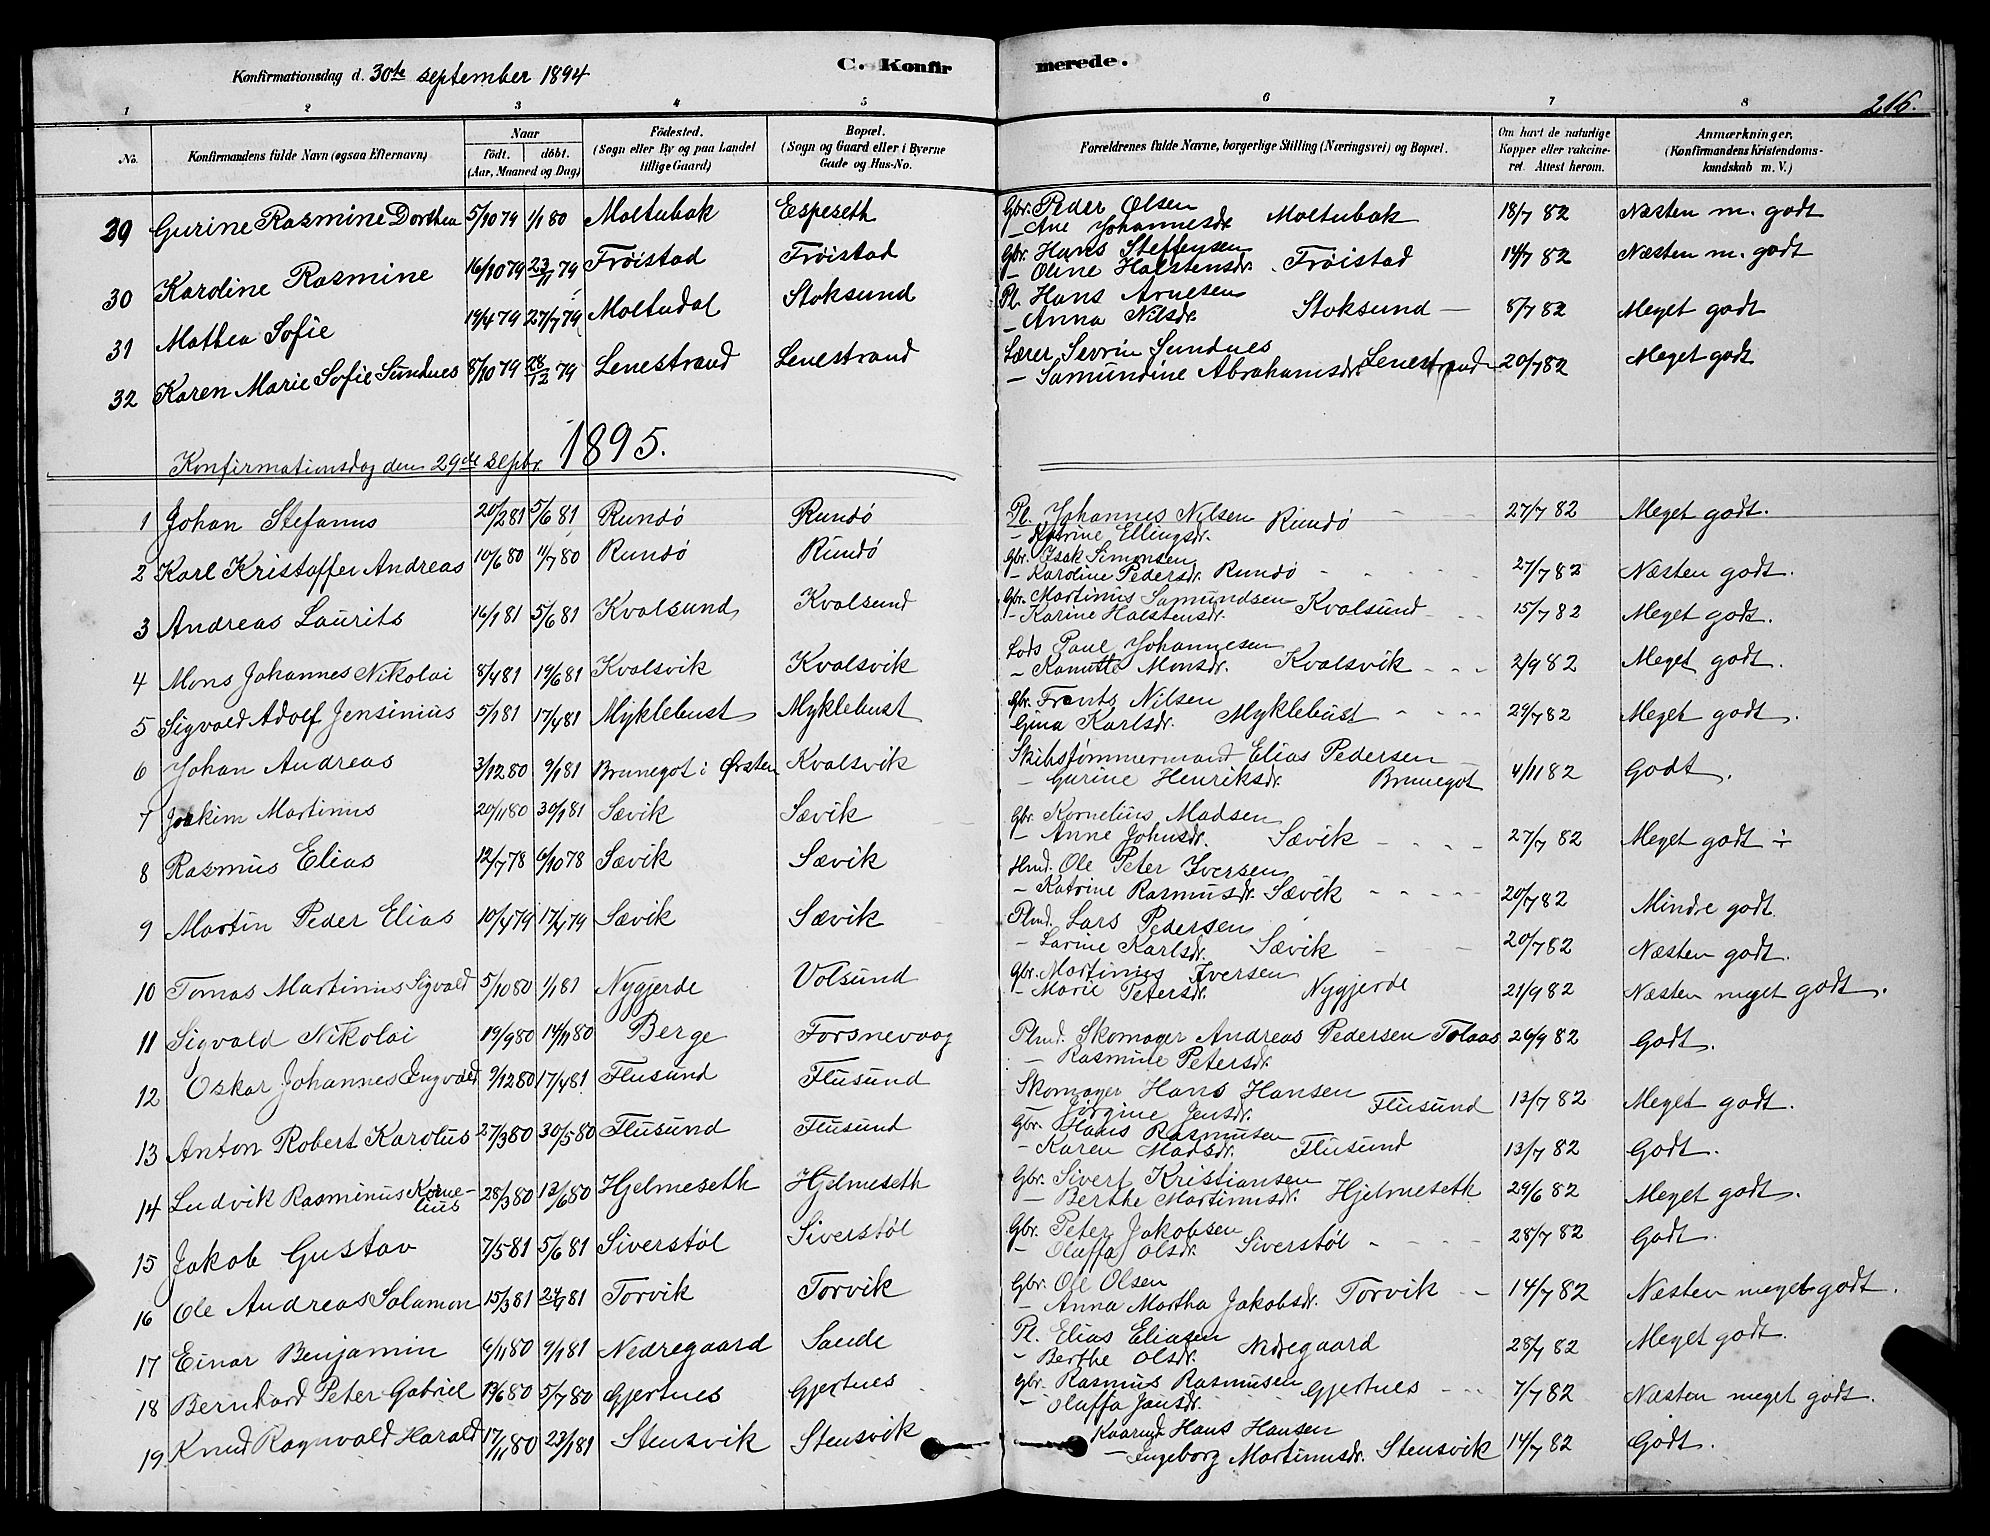 Konfirmationsdag d. 30te september 1894
C. Konfirmerede.
216.
1 2 3 4 5 6 7 8
No. | Konfirmandens fulde Navn (ogsaa Efternavn) | Naar födt. döbt. (Aar, Maaned og Dag) | Födested. (Sogn eller By og paa Landet tillige Gaard) | Bopæl. (Sogn og Gaard eller i Byerne Gade og Hus-No. | Forældrenes fulde Navne, borgerlige Stilling (Næringsvei) og Bopæl. | Om havt de naturlige Kopper eller vakcineret. Attest herom. | Anmærkninger. (Konfirmandens Kristendomskundskab m. V.)
29 Gurine Rasmine Dorthea 5/10 79 1/1 80 Moltubak Espeseth Gbr. Peder Olsen
- Ane Johannesdr. Moltubak 18/7 82 Næsten m. godt
30 Karoline Rasmine 16/10 79 23/11 79 Frøistad Frøistad Gbr. Hans Steffensen
- Oline Halstensdr. Frøistad 14/7 82 Næsten m. godt
31 Mathea Sofie 19/4 79 27/7 79 Moltudal Stoksund Pl. Hans Arnesen
- Anna Nilsdr. Stoksund 8/7 82 Meget godt
32 Karen Marie Sofie Sundnes 8/10 79 28/12 79 Lenestrand Lenestrand Lærer Sevrin Sundnes
- Samundine Abrahamsdr. Lenestrand 20/7 82 Meget godt
Konfirmationsdag den 29de septbr. 1895.
1 Johan Stefanus 20/2 81 5/6 81 Rundö Rundö Pl. Johannes Nilsen
- Katrine Ellingsdr. Rundö 27/7 82 Meget godt.
2 Karl Kristoffer Andreas 10/6 80 11/7 80 Rundö Rundö Gbr. Isak Simonsen
- Karoline Pedersdr. Rundö 27/7 82 Næsten godt.
3 Andreas Laurits 16/1 81 5/6 81 Kvalsund Kvalsund Gbr. Martinus Samundsen
- Karine Halstensdr. Kvalsund 15/7 82 Meget godt.
4 Mons Johannes Nikolai 8/4 81 19/6 81 Kvalsvik Kvalsvik Lods Paul Johannesen
- Kanutte Monsdr. Kvalsvik 2/9 82 Meget godt.
5 Sigvald Adolf Jensinius 5/1 81 17/4 81 Myklebust Myklebust Gbr. Frants Nilsen
Gina Karlsdr. Myklebust 29/7 82 Meget godt.
6 Johan Andreas 3/12 80 9/1 81 Brunegot i Ørsten Kvalsvik Skibstømmermand Elias Pedersen
- Gurine Henriksdr. Brunegot 4/11 82 Godt.
7 Joakim Martinus 20/11 80 30/1 81 Sævik Sævik Gbr. Kornelius Madsen
- Anne Johnsdr. Sævik 27/7 82 Meget godt ÷
8 Rasmus Elias 12/7 78 6/10 78 Sævik Sævik Hmd. Ole Peter Iversen
- Katrine Rasmusdr. Sævik 20/7 82 Mindre godt.
9 Martin Peder Elias 10/4 79 17/4 79 Sævik Sævik Plmd. Lars Pedersen
- Larine Karlsdr. Sævik 20/7 82 Næsten godt.
10 Tomas Martinus Sigvald 5/10 80 1/1 81 Nygjerde Volsund Gbr. Martinus Iversen
- Marie Petersdr. Nygjerde 21/9 82 Næsten meget godt.
11 Sigvald Nikolai 19/9 80 14/11 80 Berge Forsnevaag Plmd. Skomager Andreas Pedersen Tolaas
- Rasmine Petersdr. 26/9 82 Godt.
12 Oskar Johannes Ingvald 9/12 80 17/4 81 Flusund Flusund Skomager Hans Hansen
- Jörgine Jensdr. Flusund 13/7 82 Meget godt.
13 Anton Robert Karolus 27/3 80 30/5 80 Flusund Flusund Gbr. Hans Rasmusen
- Karen Madsdr. Flusund 13/7 82 Godt.
14 Ludvik Rasminus Kornelius 28/3 80 13/6 80 Hjelmeseth Hjelmeseth Gbr. Sivert Kristiansen
- Berthe Martinusdr. Hjelmeseth 29/6 82 Meget godt.
15 Jakob Gustav 7/5 81 5/6 81 Siverstøl Siverstøl Gbr. Peter Jakobsen
- Oluffa Olsdr. Siverstøl 28/7 82 Godt.
16 Ole Andreas Salamon 15/3 81 24/4 81 Torvik Torvik Gbr. Ole Olsen
- Anna Martha Jakobsdr. Torvik 14/7 82 Næsten meget godt.
17 Einar Benjamin 6/11 80 9/1 81 Nedregaard Sande Pl. Elias Eliasen
- Berthe Olsdr. Nedregaard 28/7 82 Meget godt.
18 Bernhard Peter Gabriel 13/6 80 5/7 80 Gjertnes Gjertnes Gbr. Rasmus Rasmusen
- Oluffa Jansdr. Gjertnes 7/7 82 Næsten meget godt.
19 Knud Ragnvald Harald 17/11 80 23/1 81 Stensvik Stensvik Kaarmd. Hans Hansen
- Ingeborg Martinusdr. Stensvik 14/7 82 Godt.